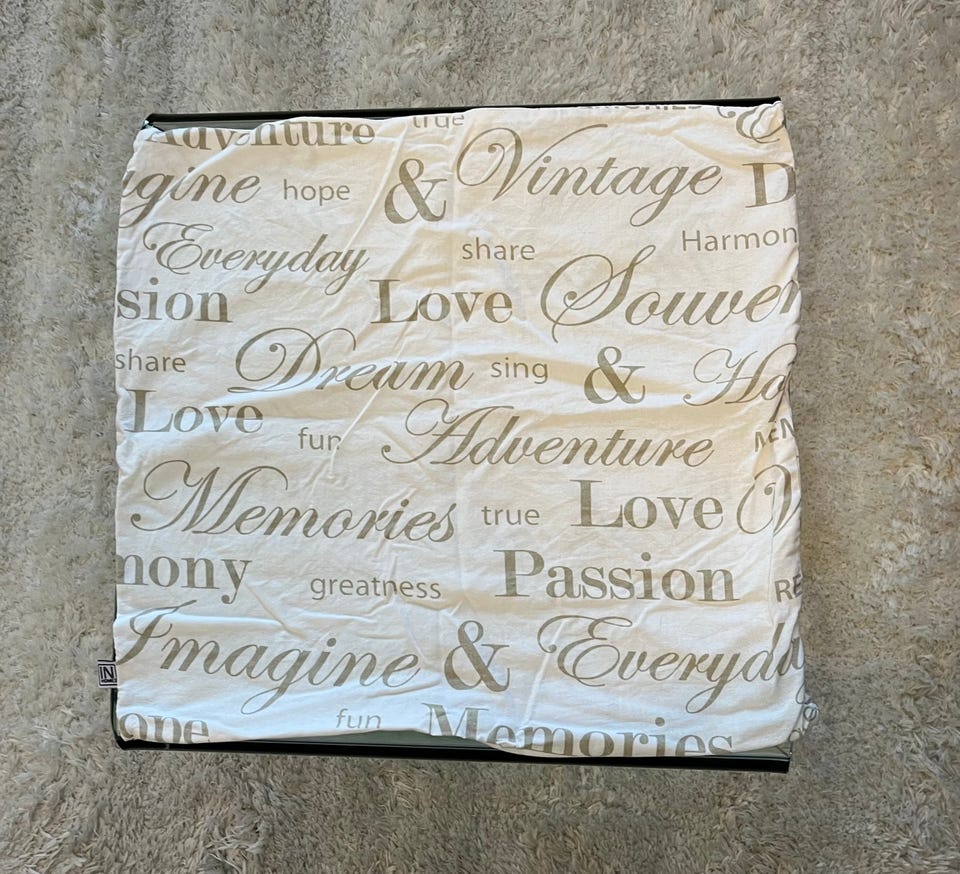 Adventure true
agine hope & Vintage D
Everyday share Harmon
sion Love Souven
share Dream sing & Ha
Love fun Adventure MEN
Memories true Love
mony greatness Passion RE
Imagine & Everyday
ope fun Memories
IN